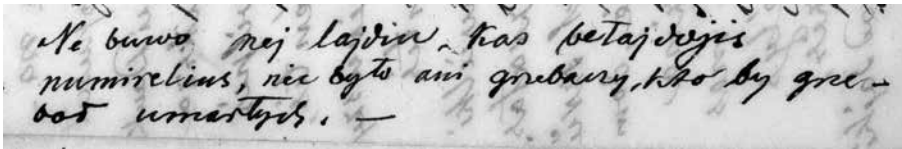 Ne buwo nej lajdiu, kas bełajdojis
numirelius, nie było ani grzebaczy, kto by grze-
bał umarłych. —